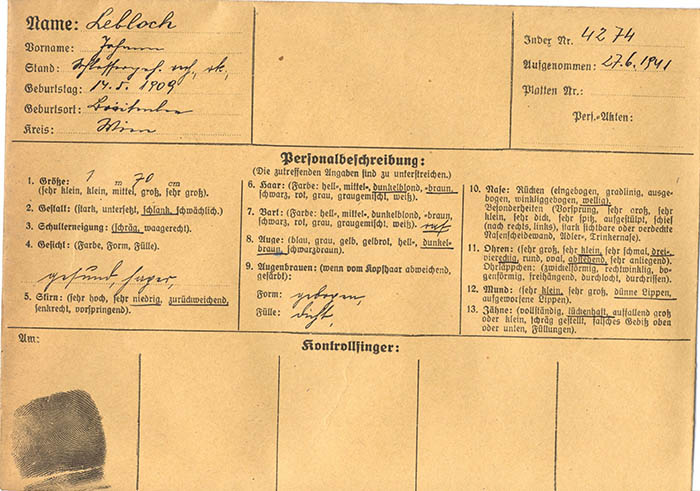 Name: Lebloch
Vorname: Johann
Stand:
Geburtstag: 14.5.1909
Geburtsort:
Kreis: Wien
Index Nr. 4274
Aufgenommen: 27.6.1941
Platten Nr.:
Pers.-Akten:
Personalbeschreibung:
(Die zutreffenden Angaben sind zu unterstreichen.)
1. Größe: 1 m 70 cm
(sehr klein, klein, mittel, groß, sehr groß).
2. Gestalt: (stark, untersetzt, schlank, schwächlich.)
3. Schulterneigung: (schräg, waagerecht).
4. Gesicht: (Farbe, Form, Fülle).
gesund, hager,
5. Stirn: (sehr hoch, sehr niedrig, zurückweichend,
senkrecht, vorspringend).
6. Haar: (Farbe: hell-, mittel-, dunkelblond, -braun,
schwarz, rot, grau, graugemischt, weiß).
7. Bart: (Farbe: hell-, mittel-, dunkelblond, -braun,
schwarz, rot, grau, graugemischt, weiß).
8. Auge: (blau, grau, gelb, gelbrot, hell-, dunkel-
braun, schwarzbraun).
9. Augenbrauen: (wenn vom Kopfhaar abweichend,
gefärbt):
Form: gebogen,
Fülle: dicht,
10. Nase: Rücken (eingebogen, gradlinig, ausge-
bogen, winkliggebogen, wellig).
Besonderheiten (Vorsprung, sehr groß, sehr
klein, sehr dick, sehr spitz, aufgestülpt, schief
(nach rechts, links), stark sichtbare oder verdeckte
Nasenscheidewand, Adler-, Trinkernase).
11. Ohren: (sehr groß, sehr klein, sehr schmal, drei-,
viereckig, rund, oval, abstehend, sehr anliegend).
Ohrläppchen: (zwickelförmig, rechtwinklig, bo-
genförmig, freihängend, durchlocht, durchrissen).
12. Mund: (sehr klein, sehr groß, dünne Lippen,
aufgeworfene Lippen).
13. Zähne: (vollständig, lückenhaft, auffallend groß
oder klein, schräg gestellt, falsches Gebiß oben
oder unten, Füllungen).
Am:
Kontrollfinger: